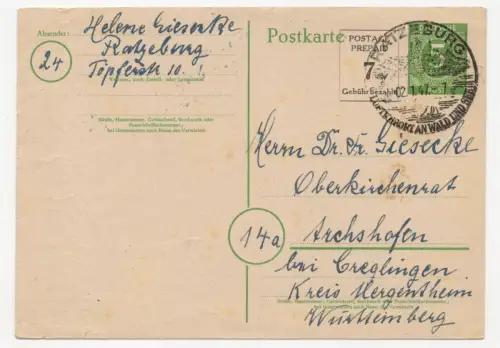 Absender: Helene Giesecke
Ratzeburg
Töpferstr. 10.
24
Wohnort, auch Zustell- oder Leitpostamt
Straße, Hausnummer, Gebäudeteil, Stockwerk oder
Postschließfachnummer;
bei Untermietern auch Name des Vermieters
Postkarte
POSTAGE
PREPAID
Gebühr bezahlt
RATZEBURG
02.1.47.-17
LUFTKURORT AN WALD UND SEEN
Herrn Dr. Fr. Giesecke
Oberkirchenrat
14a
Archshofen
bei Creglingen
Kreis Mergentheim
Straße, Hausnummer, Gebäudeteil, Stockwerk oder Postschließfachnummer;
bei Untermietern auch Name des Vermieters
Württemberg